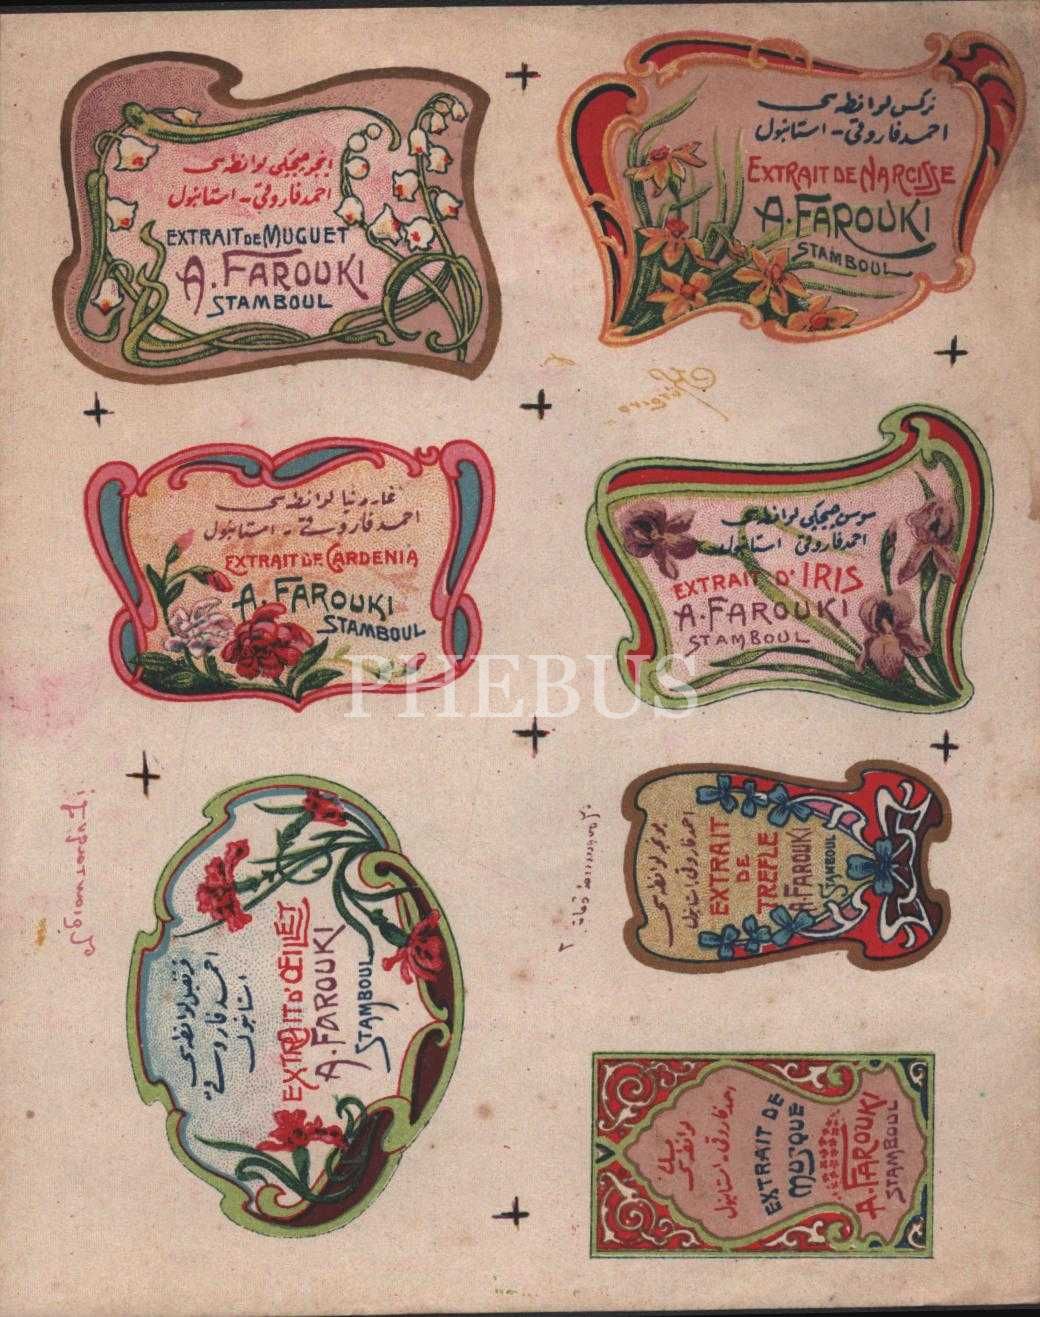 انجو چيچكى لوانطه سى
احمد فاروقى - استانبول
EXTRAIT DE MUGUET
A. FAROUKI
STAMBOUL
نركس لوانطه سى
احمد فاروقى - استانبول
EXTRAIT DE NARCISSE
A. FAROUKI
STAMBOUL
غاردنيا لوانطه سى
احمد فاروقى - استانبول
EXTRAIT DE GARDENIA
A. FAROUKI
STAMBOUL
سوسن چيچكى لوانطه سى
احمد فاروقى استانبول
EXTRAIT D'IRIS
A. FAROUKI
STAMBOUL
PHEBUS
قرنفيل لوانطه سى
احمد فاروقى
استانبول
EXTRAIT D'ŒILLET
A. FAROUKI
STAMBOUL
يونجه لوانطه سى
احمد فاروقى استانبول
EXTRAIT
DE
TREFLE
A. FAROUKI
STAMBOUL
لوانطه سى
احمد فاروقى - استانبول
EXTRAIT DE
MUSQUE
A. FAROUKI
STAMBOUL